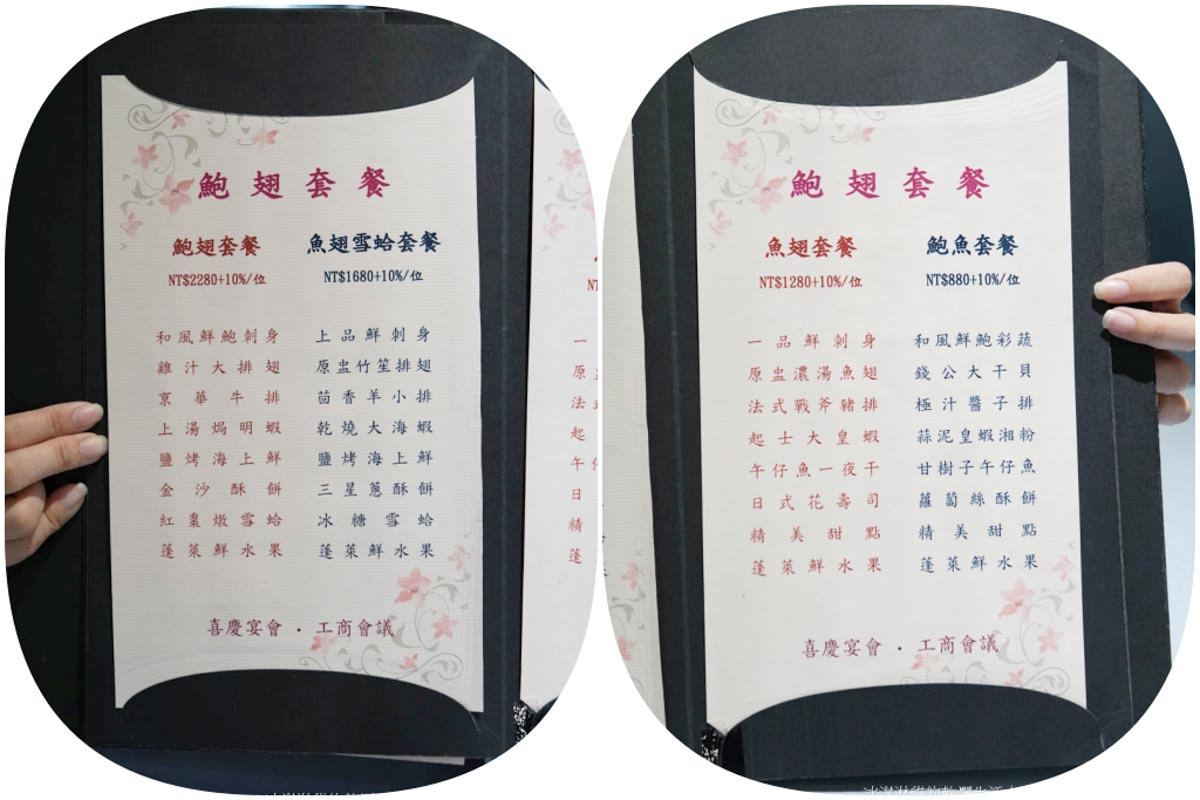 鮑翅套餐
鮑翅套餐
NT$2280+10%/位
和風鮮鮑刺身
雞汁大排翅
京華牛排
上湯焗明蝦
鹽烤海上鮮
金沙酥餅
紅棗燉雪蛤
蓬萊鮮水果
魚翅雪蛤套餐
NT$1680+10%/位
上品鮮刺身
原盅竹笙排翅
茴香羊小排
乾燒大海蝦
鹽烤海上鮮
三星蔥酥餅
冰糖雪蛤
蓬萊鮮水果
喜慶宴會．工商會議
一
原
法
起
午
日
精
蓬
鮑翅套餐
魚翅套餐
NT$1280+10%/位
一品鮮刺身
原盅濃湯魚翅
法式戰斧豬排
起士大皇蝦
午仔魚一夜干
日式花壽司
精美甜點
蓬萊鮮水果
鮑魚套餐
NT$880+10%/位
和風鮮鮑彩蔬
錢公大干貝
極汁醬子排
蒜泥皇蝦湘粉
甘樹子午仔魚
蘿蔔絲酥餅
精美甜點
蓬萊鮮水果
喜慶宴會．工商會議